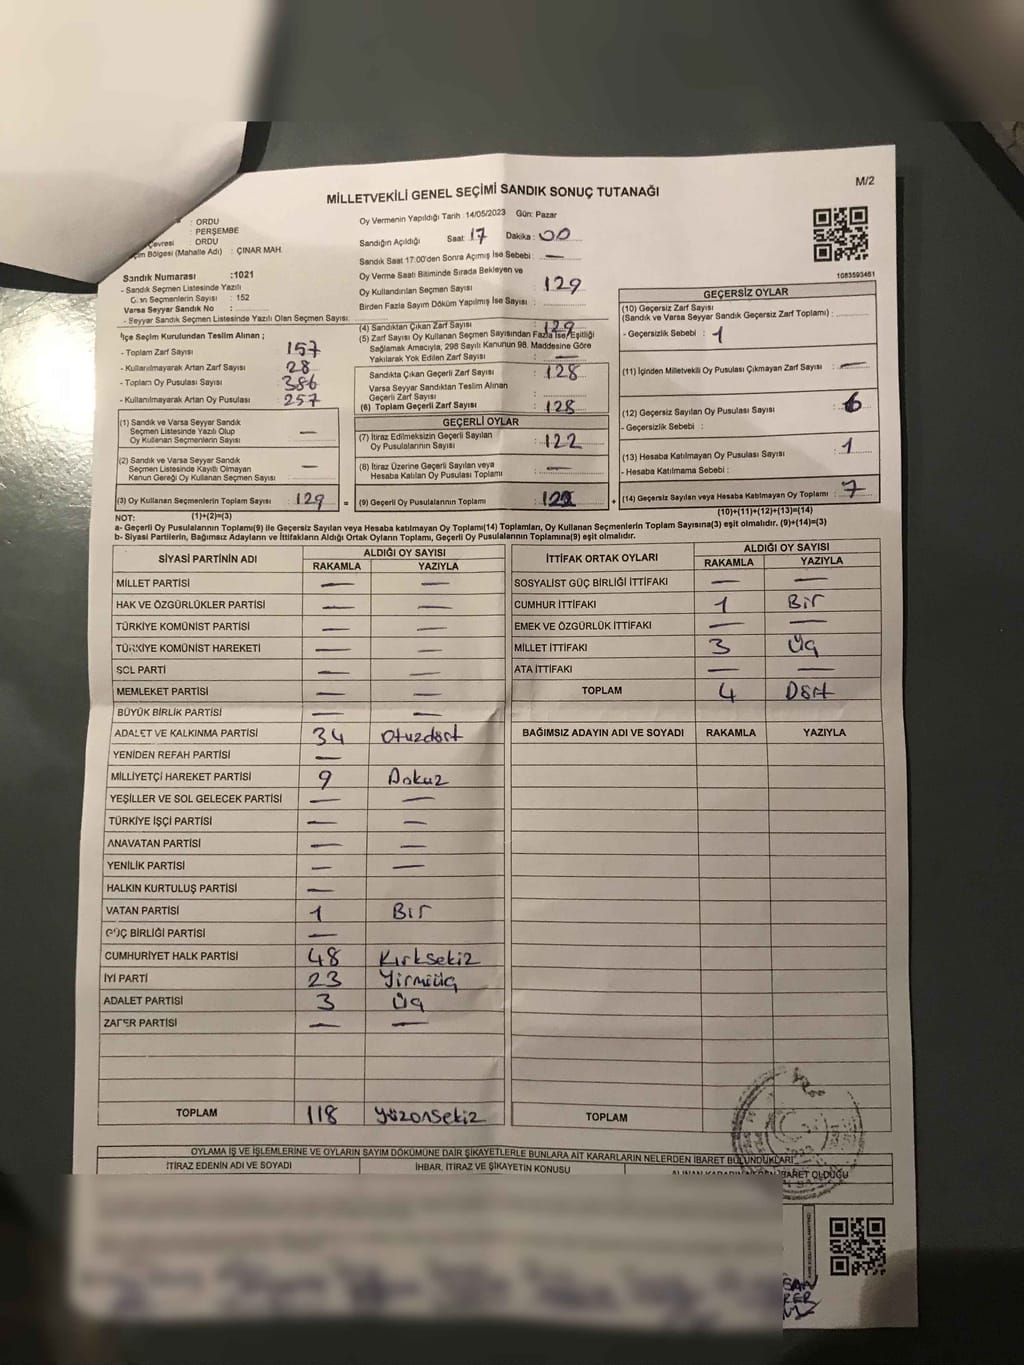 M/2
MİLLETVEKİLİ GENEL SEÇİMİ SANDIK SONUÇ TUTANAĞI
: ORDU
: PERŞEMBE
Çevresi : ORDU
Bölgesi (Mahalle Adı) : ÇINAR MAH.
Sandık Numarası :1021
- Sandık Seçmen Listesinde Yazılı
Seçmenlerin Sayısı : 152
Varsa Seyyar Sandık No :
- Seyyar Sandık Seçmen Listesinde Yazılı Olan Seçmen Sayısı:
İlçe Seçim Kurulundan Teslim Alınan ;
- Toplam Zarf Sayısı : 157
- Kullanılmayarak Artan Zarf Sayısı : 28
- Toplam Oy Pusulası Sayısı : 386
- Kullanılmayarak Artan Oy Pusulası : 257
(1) Sandık ve Varsa Seyyar Sandık
Seçmen Listesinde Yazılı Olup
Oy Kullanan Seçmenlerin Sayısı : —
(2) Sandık ve Varsa Seyyar Sandık
Seçmen Listesinde Kayıtlı Olmayan
Kanun Gereği Oy Kullanan Seçmen Sayısı : —
(3) Oy Kullanan Seçmenlerin Toplam Sayısı : 129 =
Oy Vermenin Yapıldığı Tarih :14/05/2023 Gün: Pazar
Sandığın Açıldığı Saat: 17 Dakika: 00
Sandık Saat 17:00'den Sonra Açılmış İse Sebebi : —
Oy Verme Saati Bitiminde Sırada Bekleyen ve
Oy Kullandırılan Seçmen Sayısı : 129
Birden Fazla Sayım Döküm Yapılmış İse Sayısı :
(4) Sandıktan Çıkan Zarf Sayısı : 129
(5) Zarf Sayısı Oy Kullanan Seçmen Sayısından Fazla İse/Eşitliği
Sağlamak Amacıyla, 298 Sayılı Kanunun 98. Maddesine Göre
Yakılarak Yok Edilen Zarf Sayısı : —
Sandıkta Çıkan Geçerli Zarf Sayısı : 128
Varsa Seyyar Sandıktan Teslim Alınan
Geçerli Zarf Sayısı :
(6) Toplam Geçerli Zarf Sayısı : 128
GEÇERLİ OYLAR
(7) İtiraz Edilmeksizin Geçerli Sayılan
Oy Pusulalarının Sayısı : 122
(8) İtiraz Üzerine Geçerli Sayılan veya
Hesaba Katılan Oy Pusulası Toplamı : —
(9) Geçerli Oy Pusulalarının Toplamı : 122 +
1083593461
GEÇERSİZ OYLAR
(10) Geçersiz Zarf Sayısı
(Sandık ve Varsa Seyyar Sandık Geçersiz Zarf Toplamı) :
- Geçersizlik Sebebi : 1
(11) İçinden Milletvekili Oy Pusulası Çıkmayan Zarf Sayısı : —
(12) Geçersiz Sayılan Oy Pusulası Sayısı : 6
- Geçersizlik Sebebi :
(13) Hesaba Katılmayan Oy Pusulası Sayısı : 1
- Hesaba Katılmama Sebebi :
(14) Geçersiz Sayılan veya Hesaba Katılmayan Oy Toplamı : 7
NOT: (1)+(2)=(3) (10)+(11)+(12)+(13)=(14)
a- Geçerli Oy Pusulalarının Toplamı(9) ile Geçersiz Sayılan veya Hesaba katılmayan Oy Toplamı(14) Toplamları, Oy Kullanan Seçmenlerin Toplam Sayısına(3) eşit olmalıdır. (9)+(14)=(3)
b- Siyasi Partilerin, Bağımsız Adayların ve İttifakların Aldığı Ortak Oyların Toplamı, Geçerli Oy Pusulalarının Toplamına(9) eşit olmalıdır.
SİYASİ PARTİNİN ADI ALDIĞI OY SAYISI
RAKAMLA YAZIYLA
MİLLET PARTİSİ — —
HAK VE ÖZGÜRLÜKLER PARTİSİ — —
TÜRKİYE KOMÜNİST PARTİSİ — —
TÜRKİYE KOMÜNİST HAREKETİ — —
SOL PARTİ — —
MEMLEKET PARTİSİ — —
BÜYÜK BİRLİK PARTİSİ — —
ADALET VE KALKINMA PARTİSİ 34 Otuzdört
YENİDEN REFAH PARTİSİ —
MİLLİYETÇİ HAREKET PARTİSİ 9 Dokuz
YEŞİLLER VE SOL GELECEK PARTİSİ — —
TÜRKİYE İŞÇİ PARTİSİ — —
ANAVATAN PARTİSİ — —
YENİLİK PARTİSİ — —
HALKIN KURTULUŞ PARTİSİ —
VATAN PARTİSİ 1 Bir
GÜÇ BİRLİĞİ PARTİSİ —
CUMHURİYET HALK PARTİSİ 48 Kırksekiz
İYİ PARTİ 23 Yirmiüç
ADALET PARTİSİ 3 Üç
ZAFER PARTİSİ — —
TOPLAM 118 Yüzonsekiz
İTTİFAK ORTAK OYLARI ALDIĞI OY SAYISI
RAKAMLA YAZIYLA
SOSYALİST GÜÇ BİRLİĞİ İTTİFAKI — —
CUMHUR İTTİFAKI 1 Bir
EMEK VE ÖZGÜRLÜK İTTİFAKI — —
MİLLET İTTİFAKI 3 Üç
ATA İTTİFAKI — —
TOPLAM 4 Dört
BAĞIMSIZ ADAYIN ADI VE SOYADI RAKAMLA YAZIYLA
TOPLAM
OYLAMA İŞ VE İŞLEMLERİNE VE OYLARIN SAYIM DÖKÜMÜNE DAİR ŞİKAYETLERLE BUNLARA AİT KARARLARIN NELERDEN İBARET BULUNDUKLARI
İTİRAZ EDENİN ADI VE SOYADI İHBAR, İTİRAZ VE ŞİKAYETİN KONUSU İBARET OLDUĞU